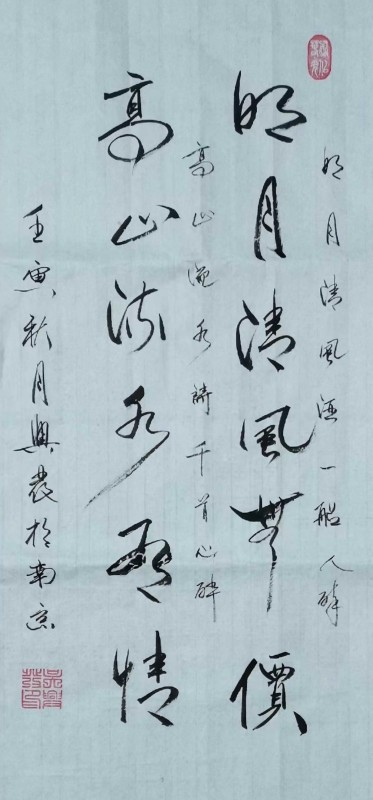 明月清風酒一船人醉
明月清風無價
高山流水詩千首心醉
高山流水有情
壬寅秋月興發於南京